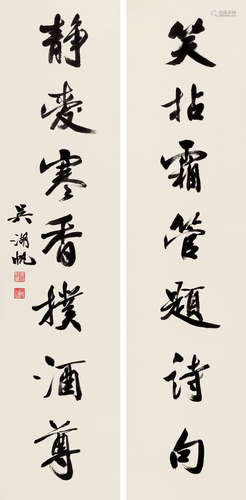 笑拈霜管題詩句
静愛寒香撲酒尊
吳湖帆